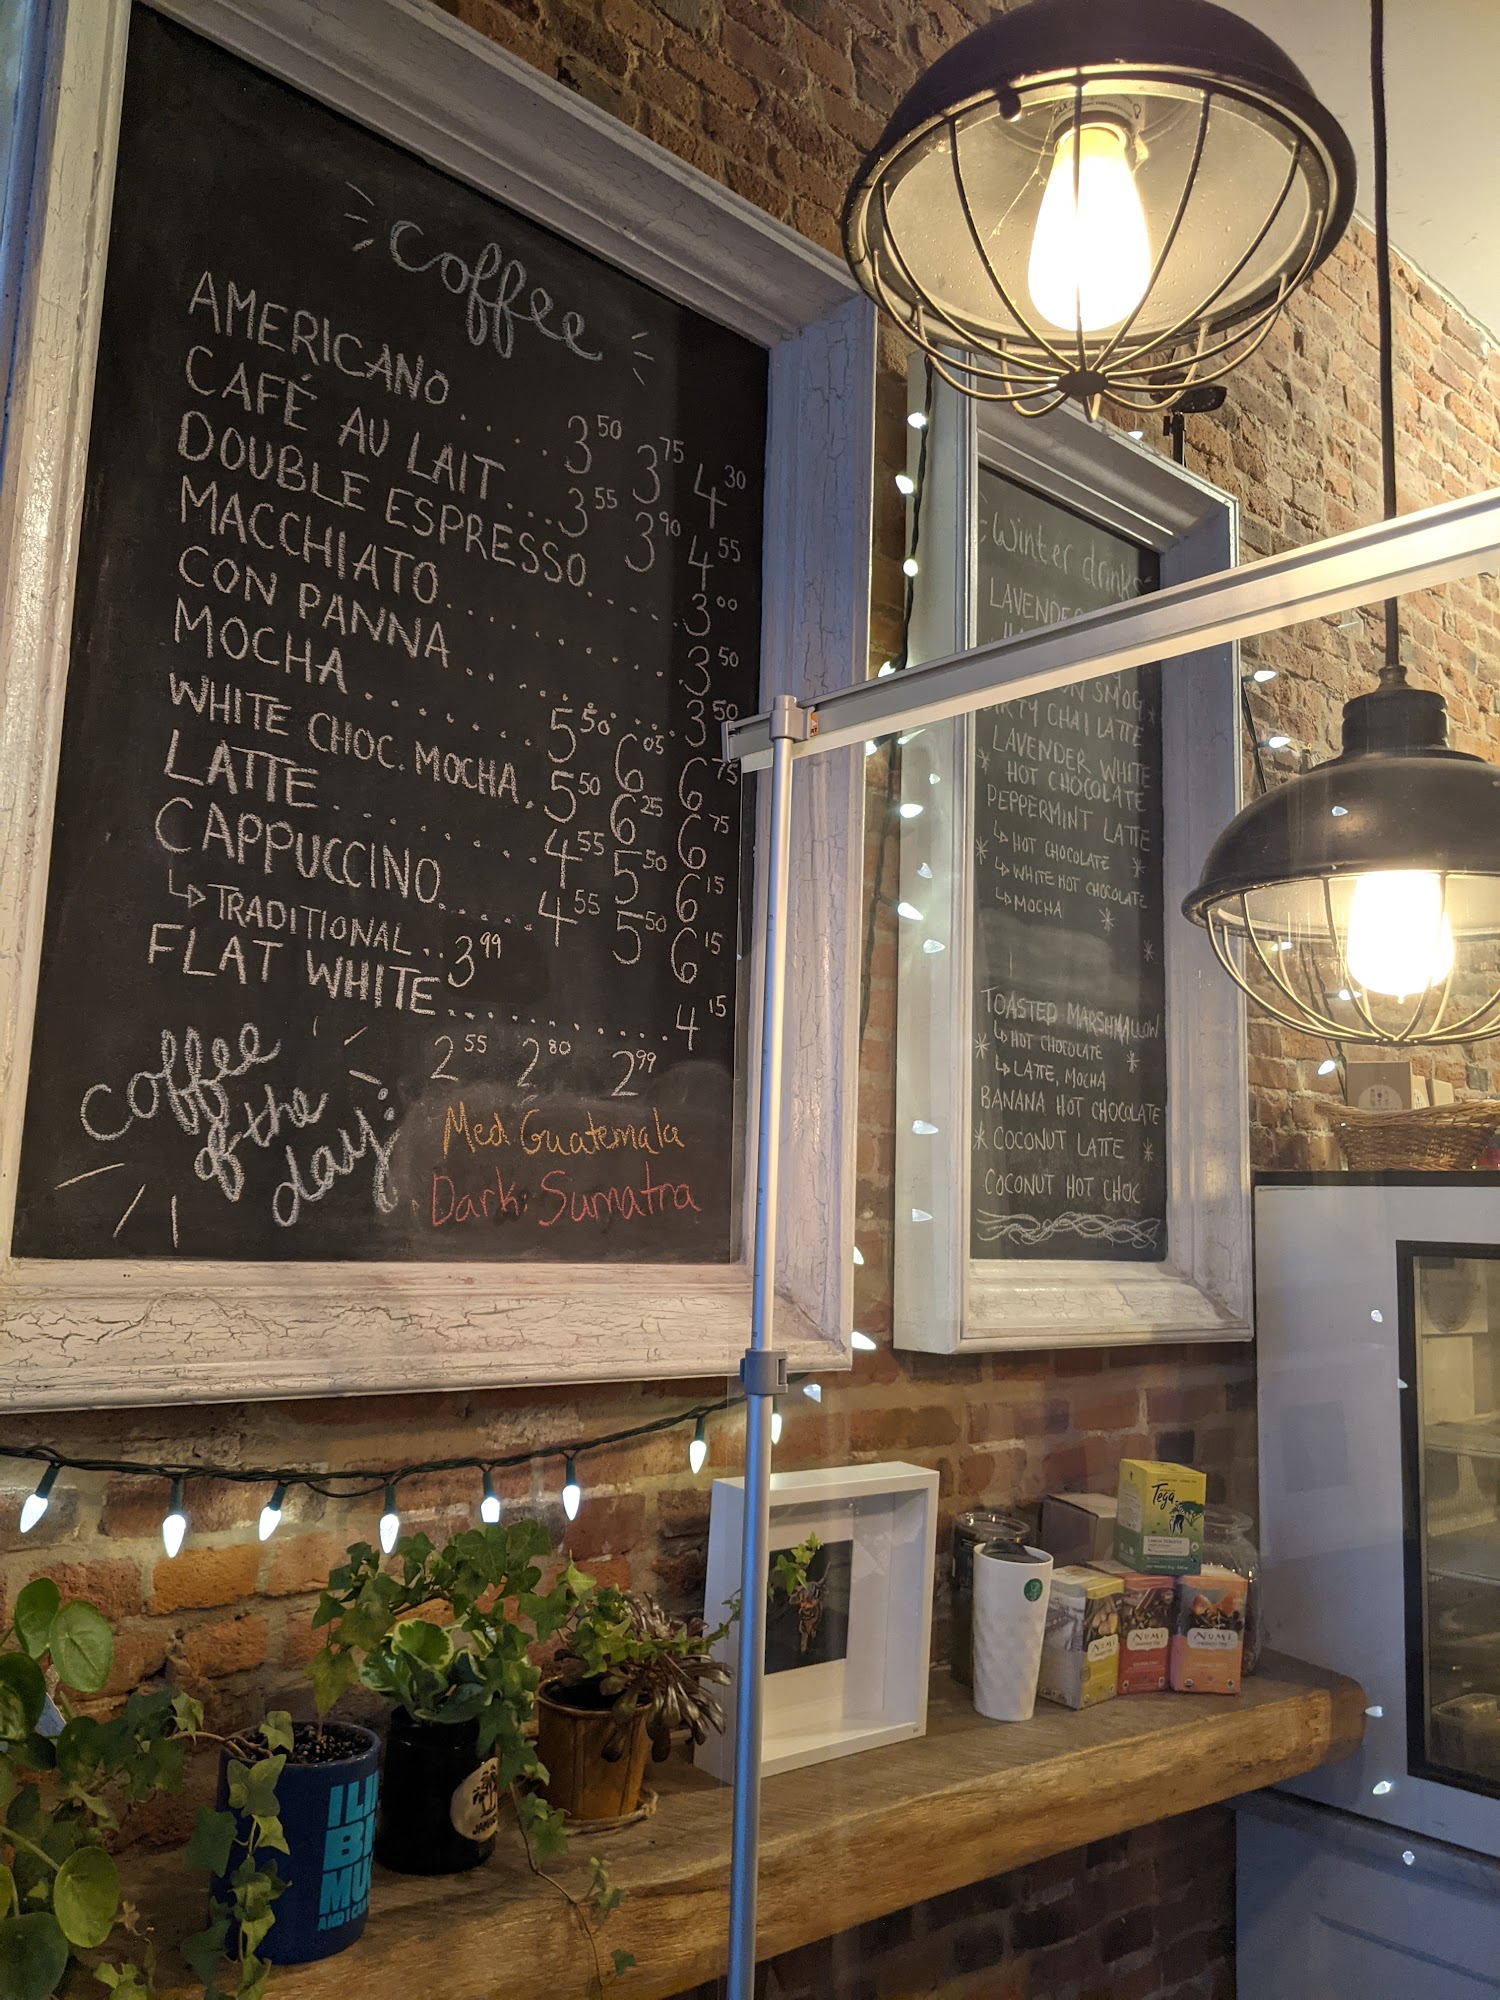 coffee
AMERICANO..... 3 50 3 75 4 30
CAFÉ AU LAIT... 3 55 3 90 4 55
DOUBLE ESPRESSO..... 3 00
MACCHIATO........... 3 50
CON PANNA........... 3 50
MOCHA....... 5 50 6 05 6 75
WHITE CHOC. MOCHA. 5 50 6 25 6 75
LATTE........ 4 55 5 50 6 15
CAPPUCCINO..... 4 55 5 50 6 15
↳ TRADITIONAL.. 3 99
FLAT WHITE........... 4 15
coffee of the day: 2 55 2 80 2 99
Med: Guatemala
Dark: Sumatra
Winter drinks
LAVENDER
SMOG
DIRTY CHAI LATTE
LAVENDER WHITE
HOT CHOCOLATE
PEPPERMINT LATTE
↳ HOT CHOCOLATE
↳ WHITE HOT CHOCOLATE
↳ MOCHA
TOASTED MARSHMALLOW
↳ HOT CHOCOLATE
↳ LATTE, MOCHA
BANANA HOT CHOCOLATE
COCONUT LATTE
COCONUT HOT CHOC
Tega
NUMI
NUMI
NUMI